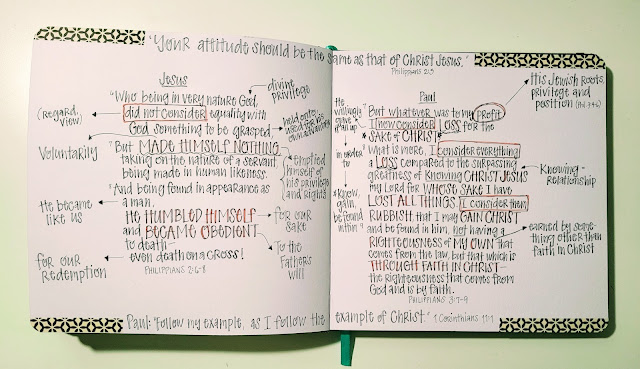 "YOUR attitude should be the same as that of CHRIST JESUS."
Philippians 2:5
Jesus
"WHO being in very nature God,
did not consider equality with
God something to be grasped,
"But MADE HIMSELF NOTHING,
taking on the nature of a servant,
being made in human likeness.
"And being found in appearance as
a man,
HE HUMBLED HIMSELF
and BECAME OBEDIENT
to death—
even death on a CROSS!
PHILIPPIANS 2:6-8
(REGARD,
VIEW)
Voluntarily
He became
like us
for our
Redemption
divine
privilege
hold onto
used for his
own advantage
emptied
himself of
his privilege
and Rights
for our
sake
To the
Father's
will
Paul
But whatever was to my profit
I now consider LOSS for the
SAKE of CHRIST.
What is more, I consider everything
a LOSS compared to the surpassing
greatness of KNOWING CHRIST JESUS
my Lord for WHOSE SAKE I have
LOST ALL THINGS. I consider them
RUBBISH that I may GAIN CHRIST
and be found in him, not having a
RIGHTEOUSNESS of MY OWN that
comes from the law, but that which is
THROUGH FAITH IN CHRIST—
the RIGHTEOUSNESS that comes from
God and is by faith.
PHILIPPIANS 3:7-9
He
willingly
gave it
all up
in order
to
know,
gain,
be found
within
His Jewish Roots,
privilege and
position
Knowing=
Relationship
earned by some-
thing other than
faith in Christ
Paul: "Follow my example, as I follow the example of Christ." 1 Corinthians 11:1